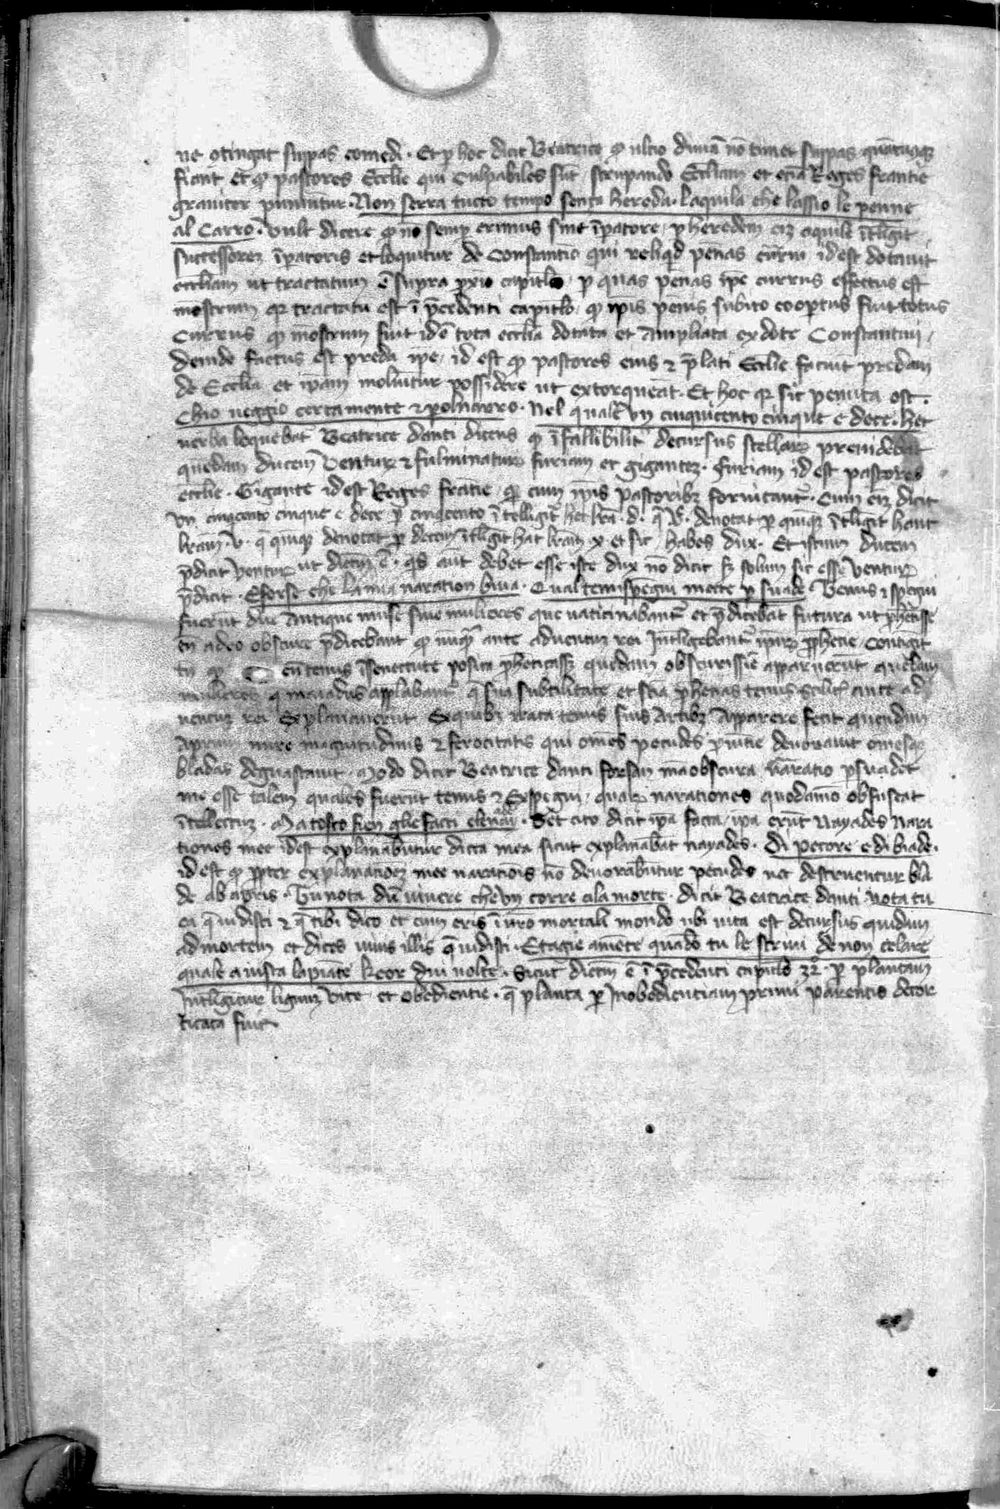 ne ꝯtingat suppas comedi. Et ꝑ hoc dicit Beatrice ꝙ ultio diuīa nō timet suppas
fiant Et ꝙ pastores Ecclie qui Culpabiles sūt strupando Eccliam et etiā Reges frantie
grauiter puniuntur. Non serra tucto tempo senza hereda. laquila che lassio le penne
al Carro. Vult dicere ꝙ nō semꝑ erimus sine īpatore, ꝑ heredem eiꝫ aquile ītligit
successorem īpatoris et loquitur de Constantio qui reliqd penas Currui idest dotauit
eccliam ut tractatum ē supra ꝓxio capitlo, ꝑ quas penas ipe currus effectus est
mostrum qꝛ tractatu est ī p̄cedenti capitlo, ꝙ ipis penis subito coopertus fuit totus
Currus ꝙ mostrum fuit idē tota ecclia dotata et Ampliata ex dote Constantini,
deinde factus est preda ipe, id est ꝙ pastores eius & p̄lati Ecclie faciut predam
de Ecclia et ipam moliuntur possidere ut extorqueat. Et hoc qꝛ sic penuta est.
Chio ueggio certamente & pol narro. Nel quale vn cinquicento cinque e dece. hec
uerba loquebat Beatrice danti dicens ꝙ īfallibilit decursus stellaꝝ preuidebat
quendam ducem Ventuꝝ & fulminatuꝝ furiam et gigantez. furiam id est pastores
ecclie. Gigante id est Reges fratie, qꝛ cum ipis pastoribꝫ fornicant. Cum eiꝫ dicit
vn cinqcento cinque e dece ꝑ cinqcento ītelligit hec lra .d. q̄ denotat ꝑ quinqꝫ ītligit hanc
lram .v. q quinqꝫ denotat ꝑ decem ītligit hac lram x et sic habes dux. Et istum ducem
p̄dicit ventuꝝ ut dictm ē. qs aut debet esse iste dux nō dicit sꝫ solum sic esse ventuꝝ
p̄dicit. Eforse che la mia naration buia. Qual temi spegni mente ꝑsuade Temis ispegni
fuerūt due Antique muse siue mulieres que uaticinabant et p̄dicebat futura ut ꝓhetisse
en adeo obscure p̄dicebant ꝙ nuqꝫ ante aduentum rei Intligebant ipaꝝ ꝓphetie, Contigit
tn ꝙ tenus īsenectute posita ꝓheticasꝫ quedam obscurissie apparuerut quedam
mulieres q naiadus applabant q sua subtilitate et scia ꝓhetias temis scilicꝫ ante ad
uentuꝫ rei Explanauerūt Exquibꝫ irata temis suis Artibꝫ Apparere fecit quendam
aprum mire magnitudinis & ferocitatis qui omes pecudes deuorauit omesqꝫ
bladas deguastauit. Modo dicit Beatrice danti forsan mea obscura narratio ꝑsuadet
me esse talem quales fuerut temis & Expegni, quaꝝ narationes quodamō obfuscat
ītellectuꝫ. Ma tosto fien glie facti elenay. Set cito dicit ipa facta, ipa erūt Nayades Nara
tiones mee idest explanabuntur dicta mea sicut explanabat nayades. Di pecore e di biade.
id est ꝙ ꝓpter explanatiōem mee narratiōis nō deuorabuntur pecudes nec destruentur bla
de ab apris. Tu nota du uiuere che vn corre ala morte. dicit Beatrice danti Nota tu
ea q̄ audisti & q̄ tibi dico et cum eris ī uīro mortali mondo ubi uita est decursus quidam
ad mortem et dices uiuis illis q̄ uidisti. Et agie amente quado tu le scriui de non celare
quale auista la piate keor diu uolte. Sicut dictm ē ī p̄cedenti capitlo 32º. ꝑ plantam
Intligitur lignum vite et obedientie. q̄ planta ꝑ Inobedientiam primi parentis decor
ticata fuit.